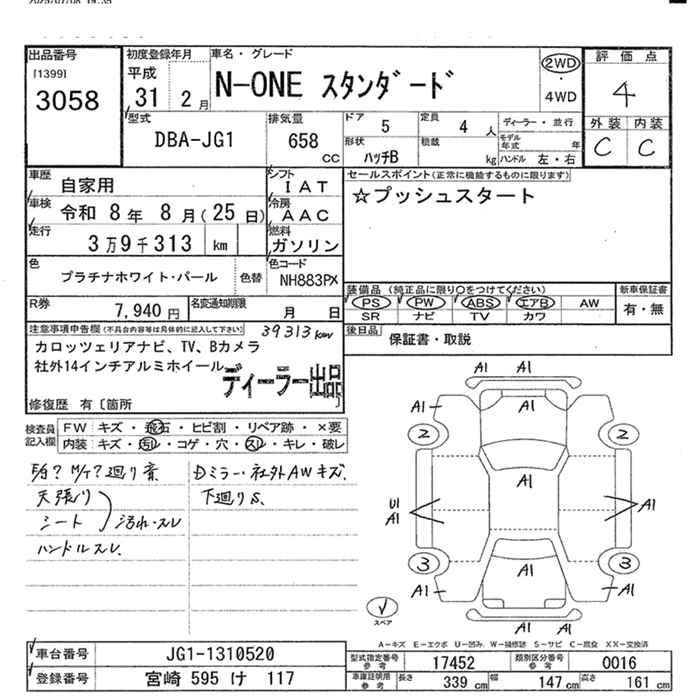 出品番号
[1399]
3058
初度登録年月
平成
31 2 月
車名・グレード
N-ONE スタンダード
2WD
4WD
評価点
4
外装 内装
C C
型式
DBA-JG1
排気量
658
CC
ドア
5
定員
4 人
形状
ハッチB
積載
kg
ディーラー・並行
モデル年式 年
ハンドル 左・右
車歴
自家用
シフト
IAT
車検
令和 8 年 8 月(25 日)
冷房
AAC
走行
3 万 9 千 313 km
燃料
ガソリン
セールスポイント(正常に機能するものに限ります)
☆プッシュスタート
色
プラチナホワイト・パール
色替
色コード
NH883PX
装備品 (純正品に限り○をつけてください)
PS PW ABS エアB AW
SR ナビ TV カワ
新車保証書
有・無
R券
7,940 円
名変通知期限
月 日
後日品
保証書・取説
注意事項申告欄(不具合内容等は具体的に記入して下さい)
39313km
カロッツェリアナビ、TV、Bカメラ
社外14インチアルミホイール
ディーラー出品
修復歴 有〔箇所 〕
検査員記入欄
FW キズ・飛石・ヒビ割・リペア跡・×要
内装 キズ・汚れ・コゲ・穴・スレ・キレ・破レ
天張り
シート
汚れ・スレ
ハンドルスレ
Dミラー・社外AWキズ.
下廻りS、
A1
A1
A1 A1
A1
2 2
A1
U1
A1
A1
A1
3 3
A1
A1 A1
A1
A1
スペア
A-キズ E-エクボ U-凹み W-補修跡 S-サビ C-腐食 XX-交換済
車台番号
JG1-1310520
登録番号
宮崎 595 け 117
型式指定番号
参考
17452
類別区分番号
参考
0016
車庫証明用
参考
長さ
339 cm
幅
147 cm
高さ
161 cm